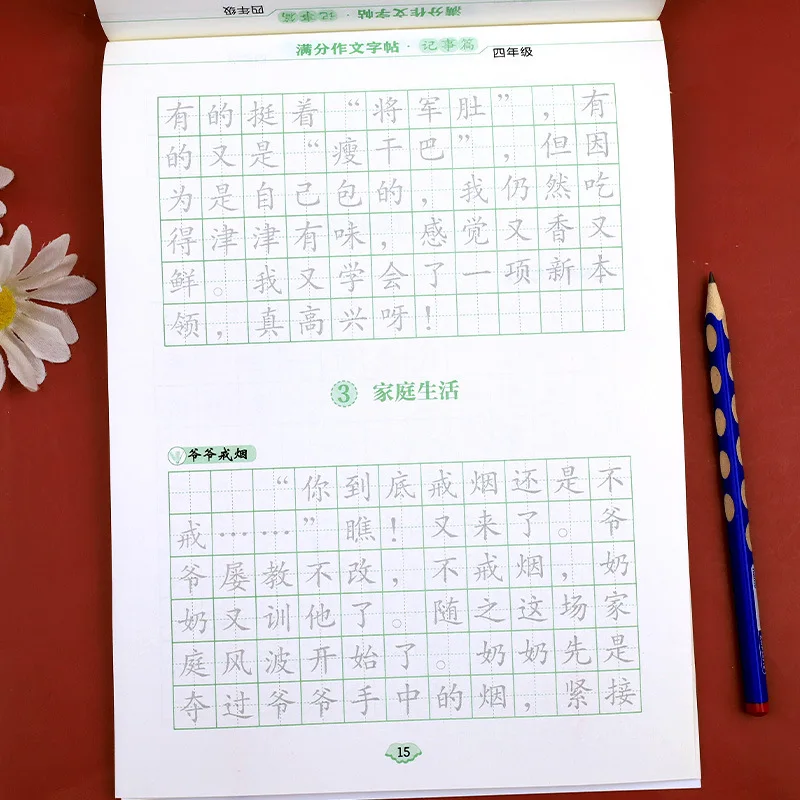 满分作文字帖·记事篇 四年级
满分作文字帖·记事篇 四年级
有的挺着“将军肚”，有
的又是“瘦干巴”，但因
为是自己包的，我仍然吃
得津津有味，感觉又香又
鲜。我又学会了一项新本
领，真高兴呀！
3 家庭生活
爷爷戒烟
“你到底戒烟还是不
戒……”瞧！又来了。爷
爷屡教不改，不戒烟，奶
奶又训他了。随之这场家
庭风波开始了。奶奶先是
夺过爷爷手中的烟，紧接
15